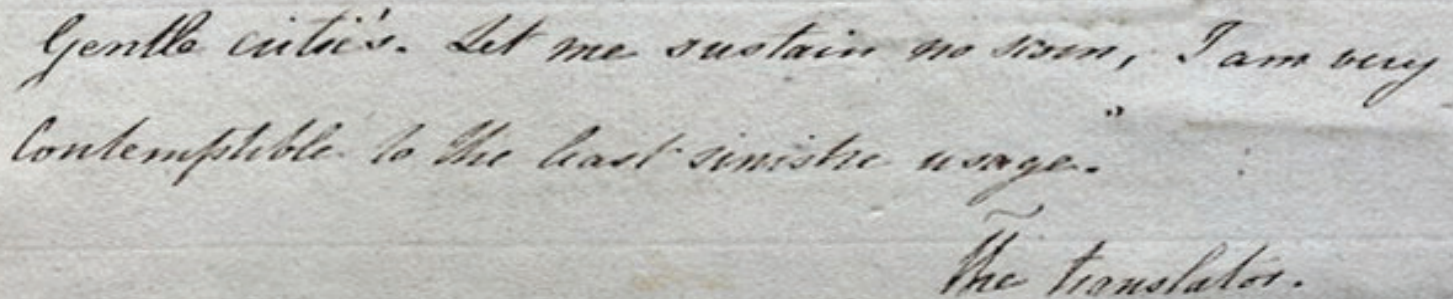 Gentle critic's. Let me sustain no scorn, I am very
Contemptible to the least sinistre usage."
The translator.